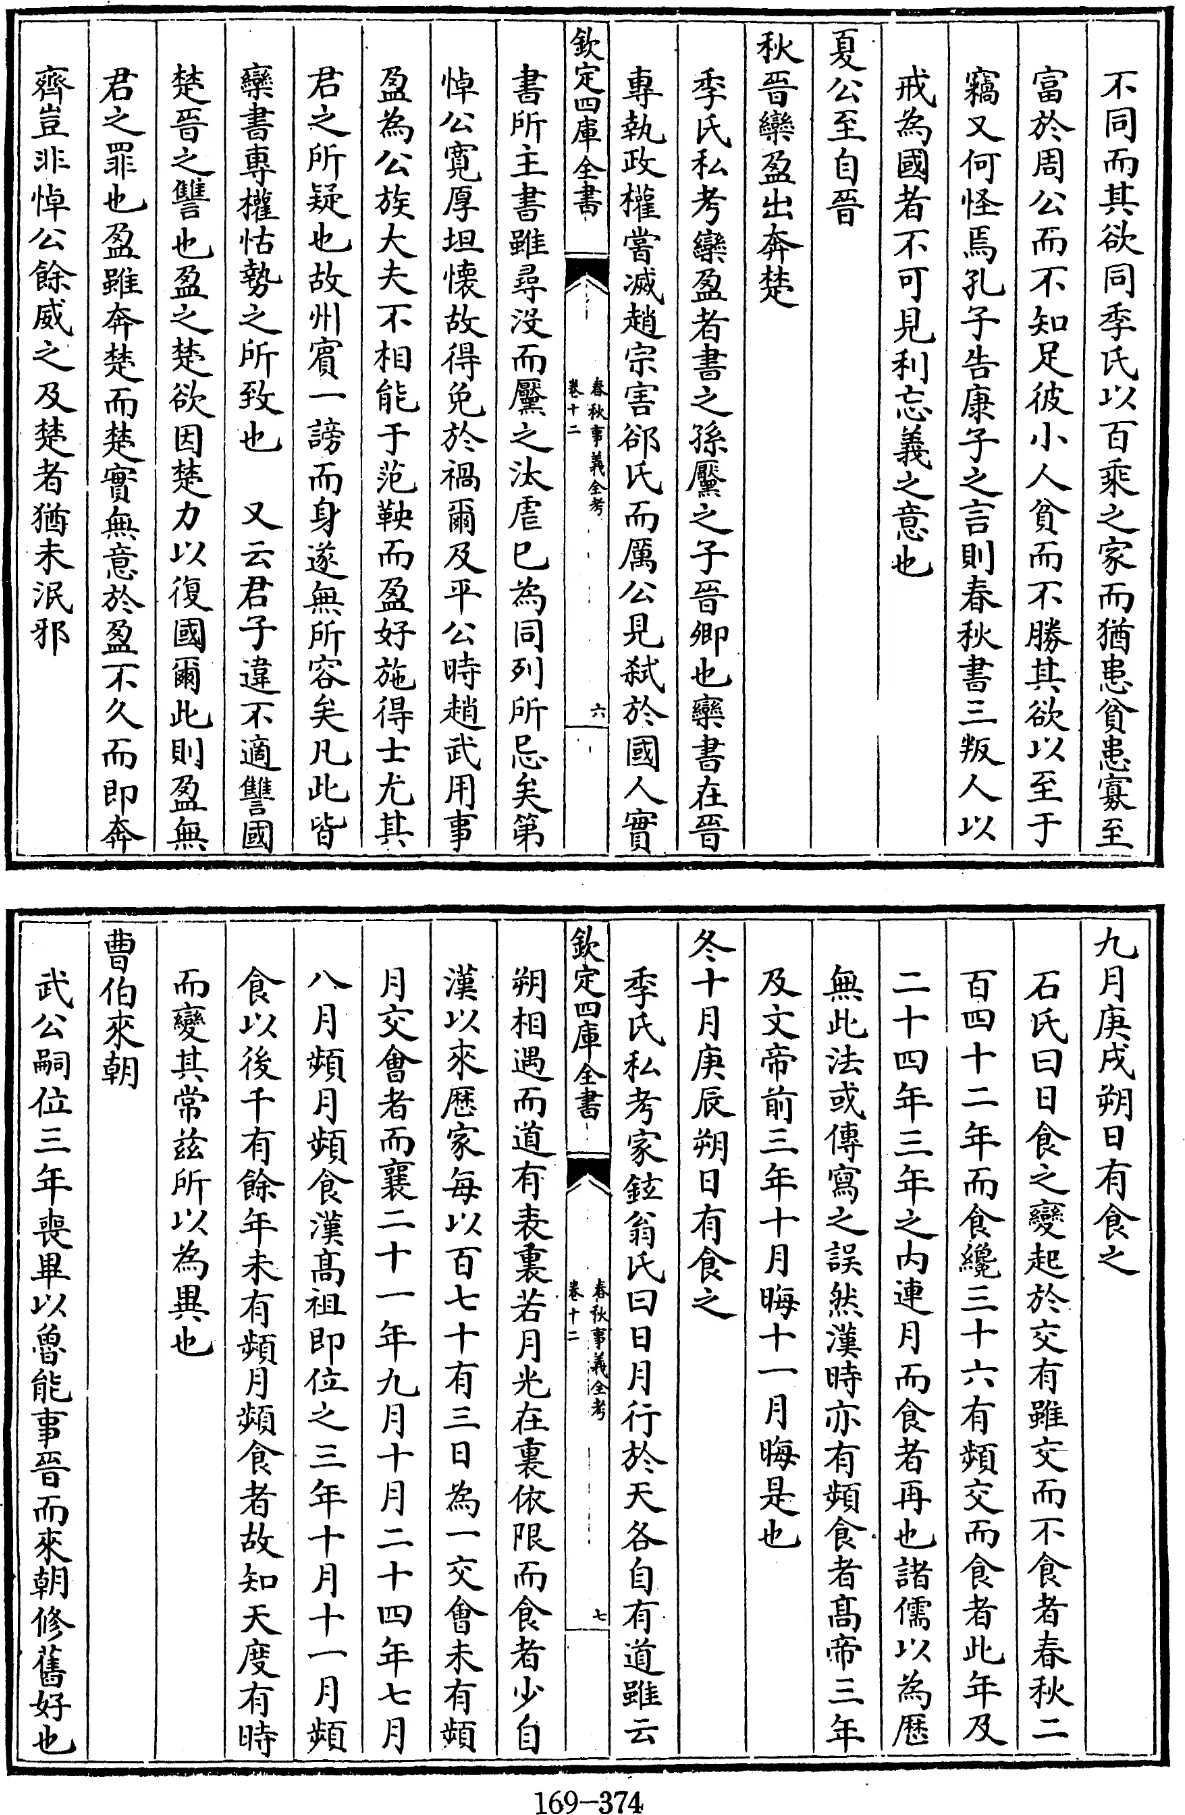 不同而其欲同季氏以百乘之家而猶患貧患寡至
富於周公而不知足彼小人貧而不勝其欲以至于
竊又何怪焉孔子告康子之言則春秋書三叛人以
戒為國者不可見利忘義之意也
夏公至自晉
秋晉欒盈出奔楚
季氏私考欒盈者書之孫黶之子晉卿也欒書在晉
專執政權嘗滅趙宗害郤氏而厲公見弑於國人實
欽定四庫全書
春秋事義全考
卷十二
六
書所主書雖尋没而黶之汰虐已為同列所忌矣第
悼公寛厚坦懐故得免於禍爾及平公時趙武用事
盈為公族大夫不相能于范鞅而盈好施得士尤其
君之所疑也故州賔一謗而身遂無所容矣凡此皆
欒書專權怙勢之所致也 又云君子違不適讐國
楚晉之讐也盈之楚欲因楚力以復國爾此則盈無
君之罪也盈雖奔楚而楚實無意於盈不久而即奔
齊豈非悼公餘威之及楚者猶未泯邪
九月庚戌朔日有食之
石氏曰日食之變起於交有雖交而不食者春秋二
百四十二年而食纔三十六有頻交而食者此年及
二十四年三年之内連月而食者再也諸儒以為厯
無此法或傳寫之誤然漢時亦有頻食者高帝三年
及文帝前三年十月晦十一月晦是也
冬十月庚辰朔日有食之
季氏私考家鉉翁氏曰日月行於天各自有道雖云
欽定四庫全書
春秋事義全考
卷十二
七
朔相遇而道有表裏若月光在裏依限而食者少自
漢以來厯家每以百七十有三日為一交會未有頻
月交會者而襄二十一年九月十月二十四年七月
八月頻月頻食漢髙祖即位之三年十月十一月頻
食以後千有餘年未有頻月頻食者故知天度有時
而變其常兹所以為異也
曹伯來朝
武公嗣位三年喪畢以魯能事晉而來朝修舊好也
169-374